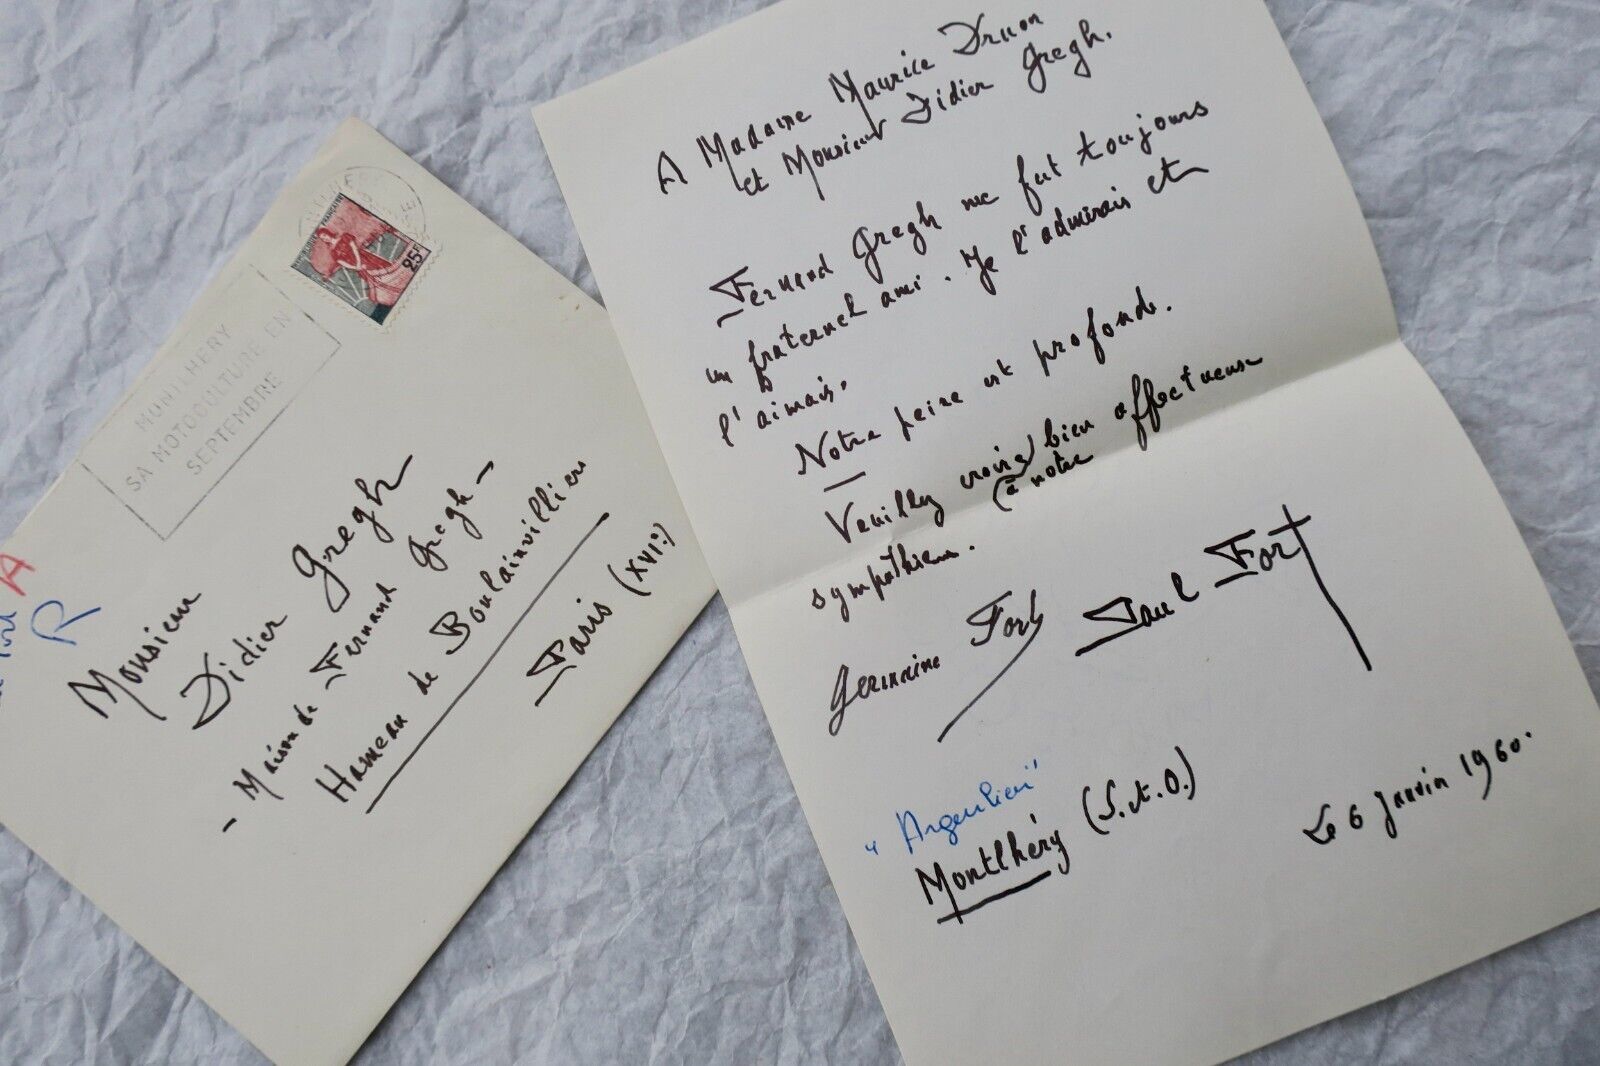 A Madame Maurice Druon
et Monsieur Didier Gregh.
Fernand Gregh me fut toujours
un fraternel ami. Je l'admirais et
l'aimais.
Notre peine est profonde.
Veuillez croire bien affectueuse
(à notre
sympathie.
Germaine Fort Paul Fort
"Argenlieu"
Montlhéry (S.&.O.)
Le 6 Janvier 1960.
25F
MONTLHERY
SA MOTOCULTURE EN
SEPTEMBRE
A
R
Monsieur
Didier Gregh
- Maison de Fernand Gregh -
Hameau de Boulainvilliers
Paris (XVIe)